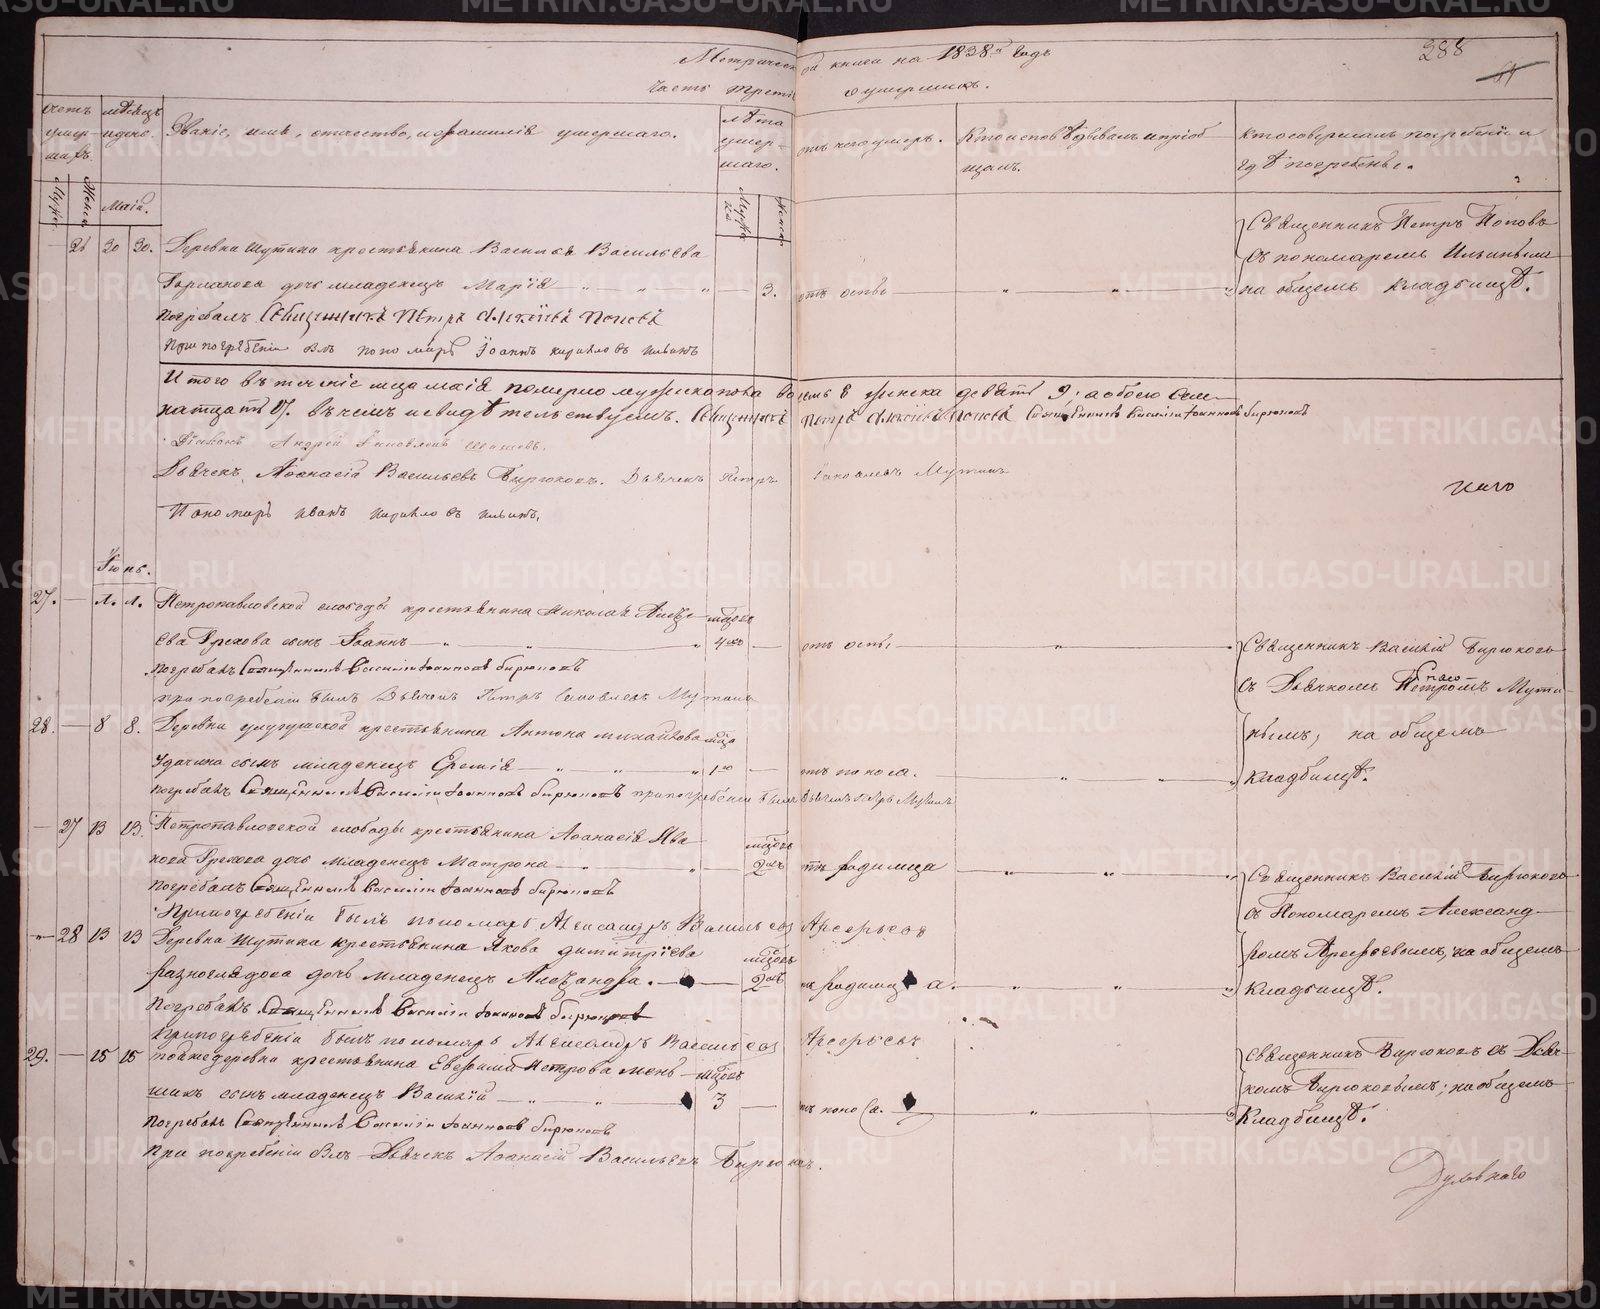 Метрической книги на 1838й годъ
288
Часть третія о умершихъ.
Счетъ умершихъ.
Мужеск
Женск
мѣсяцъ и день.
Званіе, имя, отчество, и фамилія умершаго.
лѣта умершаго.
Мужес
Женск
отъ чего умеръ.
Кто исповѣдывалъ и пріобщалъ.
Кто совершалъ погребеніе и гдѣ погребены.
Маій.
26 30 30. Деревни Шутина крестьянина Василья Васильева
дочь младенецъ Марія — 3. отъ оспы
Священникъ Петръ Поповъ
съ пономаремъ Ильиными
на общемъ кладбищѣ.
Погребалъ Священникъ Петръ Алексіевъ Поповъ
При погребеніи былъ пономарь Іоаннъ Кирилловъ Ильинъ
Итого въ теченіе мца маія померло мужеска пола восемь 8 женска девять 9, а обоего семь
натцать 17. въ чемъ и свидѣтельствуемъ. Священникъ Петръ Алексіевъ Поповъ Священникъ Василій Іоанновъ Бирюковъ
Діаконъ Андрей
Дьячекъ Аѳанасій Васильевъ Бирюковъ. Дьячекъ Петръ Яковлевъ Мутинъ
Пономарь Иванъ Кирилловъ Ильинъ.
Іюнь.
27. — 1. 1. Петропавловской слободы крестьянина Николая Алексе
ева Грехова сынъ Іоаннъ — мцовъ 4хъ — отъ оспы
Священникъ Василій Бирюковъ
Погребалъ Священникъ Василій Іоанновъ Бирюковъ
съ Дьячкомъ Петромъ Мути
при погребеніи былъ Дьячекъ Петръ Яковлевъ Мутинъ
28. — 8 8. Деревни крестьянина Антона Михайлова мца
нымъ, на общемъ
Удачина сынъ младенецъ Еремія — 1го — отъ поноса.
кладбищѣ.
Погребалъ Священникъ Василій Іоанновъ Бирюковъ при погребеніи былъ Дьячекъ Петръ Мутинъ
— 27 13 13. Петропавловской слободы крестьянина Аѳанасія Ива
мцовъ
нова Грехова дочь младенецъ Матрона — 2хъ отъ родимца
Священникъ Василій Бирюковъ
Погребалъ Священникъ Василій Іоанновъ Бирюковъ
съ Пономаремъ Александ
При погребеніи былъ пономарь Александръ Васильевъ Арефьевъ
— 28 13 13 Деревни Шутина крестьянина Якова Димитріева
мцовъ
ромъ Арефьевымъ, на общемъ
дочь младенецъ Александра. — 2хъ родимца.
кладбищѣ.
Погребалъ Священникъ Василій Іоанновъ Бирюковъ
При погребеніи былъ пономарь Александръ Васильевъ Арефьевъ
29. — 15 15 тойже деревни крестьянина Евфимія Петрова Мень
мцовъ
Священникъ Бирюковъ съ Дьяч
шикъ сынъ младенецъ Василій — 3 — отъ поноса.
комъ Бирюковымъ; на общемъ
кладбищѣ.
Погребалъ Священникъ Василій Іоанновъ Бирюковъ
При погребеніи былъ Дьячекъ Аѳанасій Васильевъ Бирюковъ.
Духовнаго
METRIKI.GASO-URAL.RU